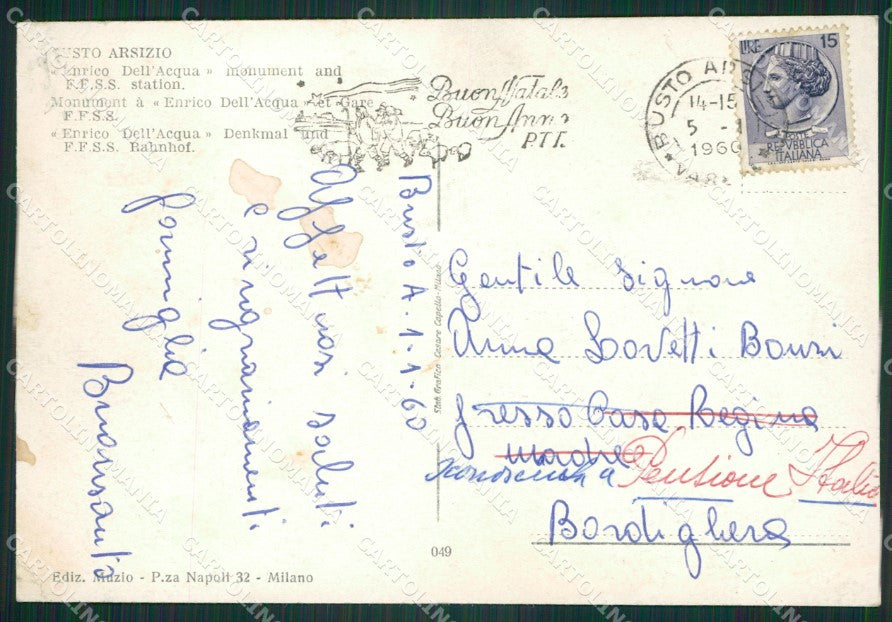 BUSTO ARSIZIO
« Enrico Dell'Acqua » monument and
F.F.S.S. station.
Monument à « Enrico Dell'Acqua » et Gare
F.F.S.S.
« Enrico Dell'Acqua » Denkmal und
F.F.S.S. Bahnhof.
Buon Natale
Buon Anno
PTT.
BUSTO AR
14-15
5 - 1
1960
VAR
LIRE 15
REPVBBLICA
ITALIANA
Busto A. 1.1.60
Affettuosi saluti
e ringraziamenti
famiglia
Buonsanto
Gentile Signora
Anna Lovetti Bonzi
presso Casa Regina
Madre
sconosciuta a Pensione Italia
Bordighera
Stab. Grafico Cesare Capello - Milano
049
Ediz. Muzio - P.za Napoli 32 - Milano
CARTOLINOMANIA